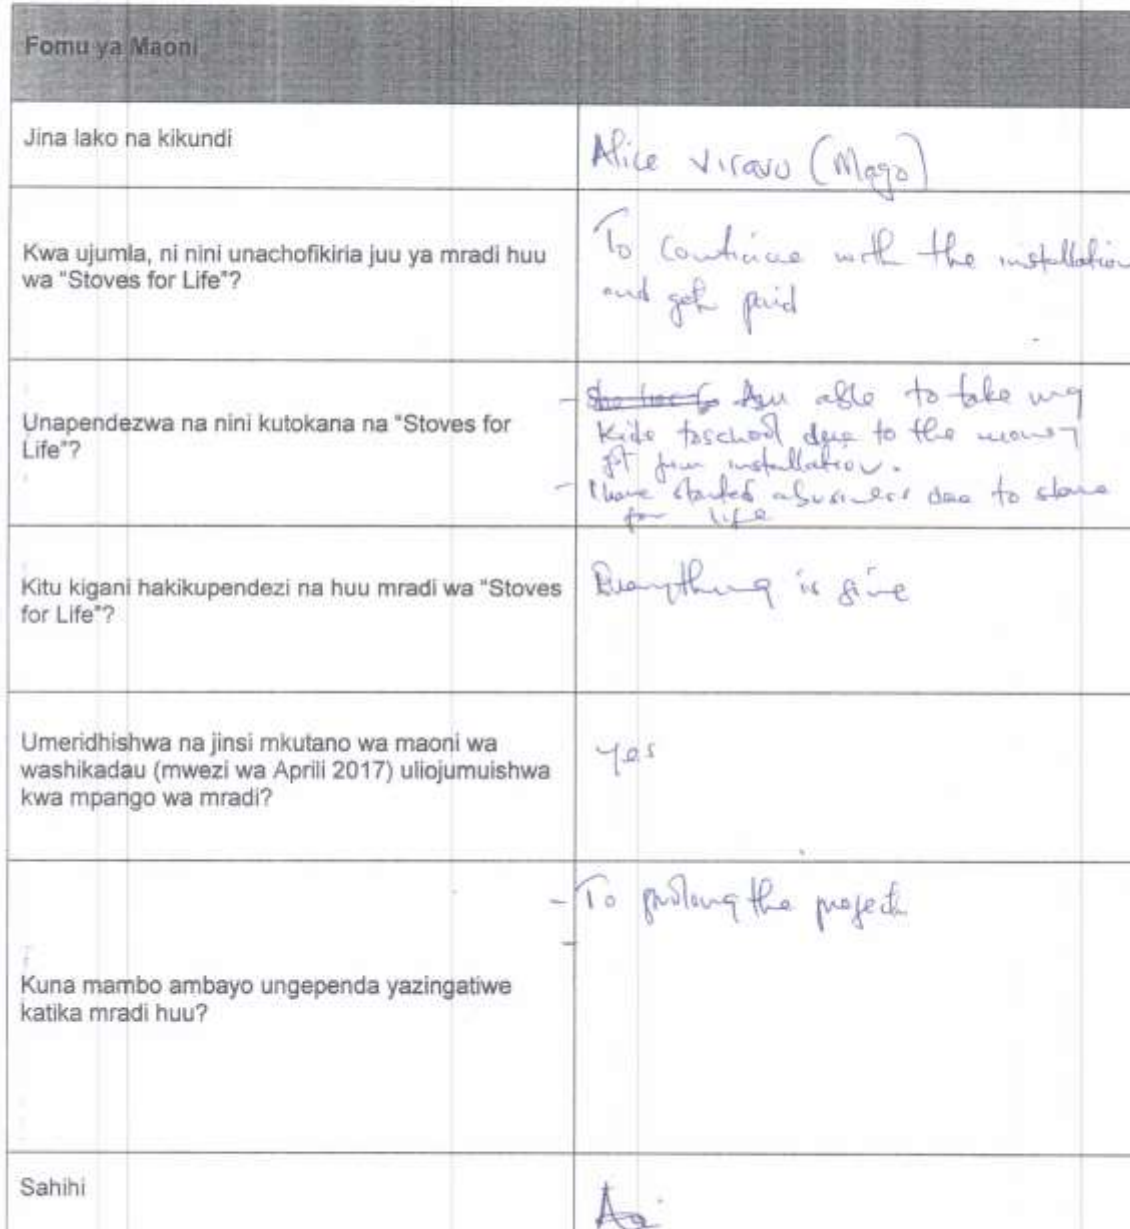 Fomu ya Maoni
Jina lako na kikundi
Alice Viravu (Mago)
Kwa ujumla, ni nini unachofikiria juu ya mradi huu
wa "Stoves for Life"?
To continue with the installation
and get paid
Unapendezwa na nini kutokana na "Stoves for
Life"?
- She has to Am able to take my
Kids toschool due to the money
got from installation.
- I have started abusiness due to stove
for life
Kitu kigani hakikupendezi na huu mradi wa "Stoves
for Life"?
Everything is fine
Umeridhishwa na jinsi mkutano wa maoni wa
washikadau (mwezi wa Aprili 2017) uliojumuishwa
kwa mpango wa mradi?
yes
Kuna mambo ambayo ungependa yazingatiwe
katika mradi huu?
- To prolong the project
-
Sahihi